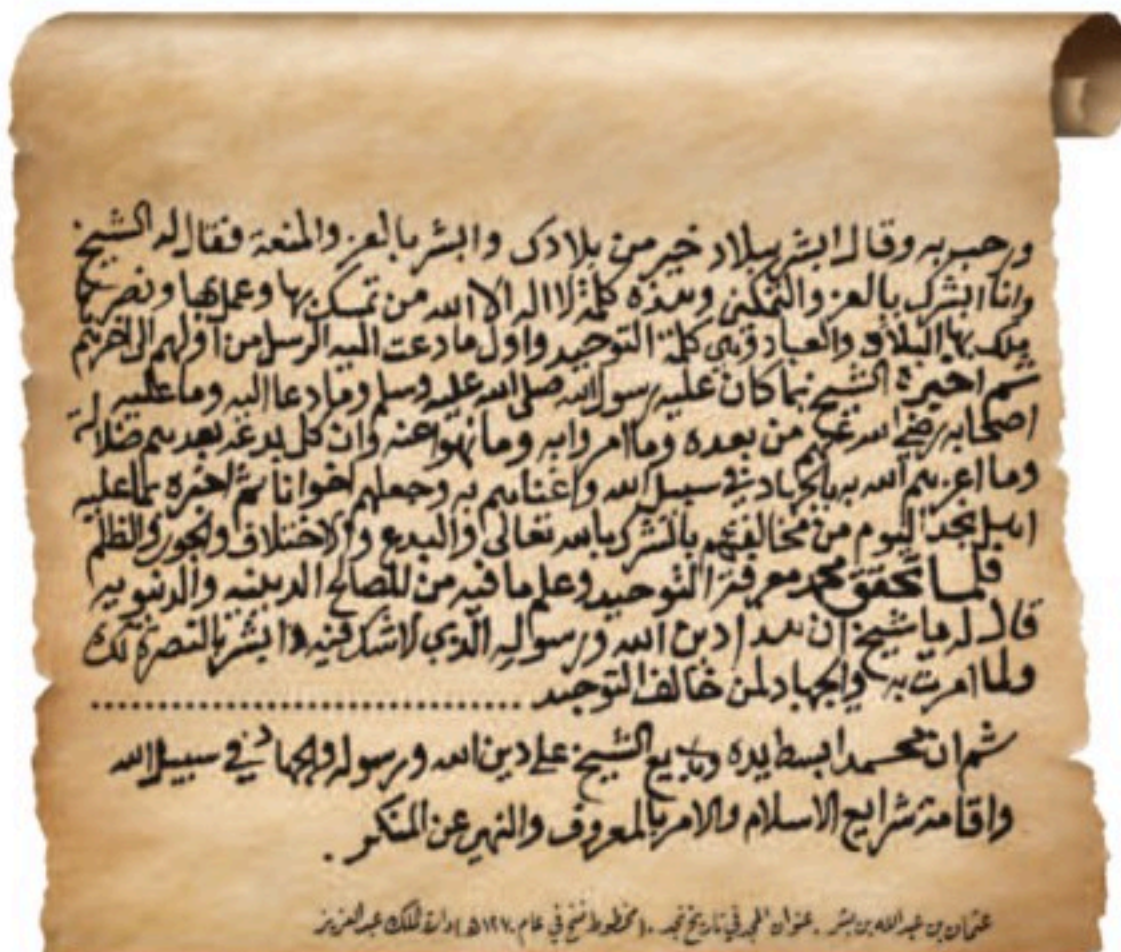 ورحب به وقال ابشر ببلاد خير من بلادك وابشر بالعز والمنعة فقال له الشيخ
وانا ابشرك بالعز والتمكين وهذه كلمة لا اله الا الله من تمسك بها وعمل بها ونصرها
ملك بها البلاد والعباد وهي كلمة التوحيد واول ما دعت اليه الرسل من اولهم الى اخرهم
ثم اخبره الشيخ بما كان عليه رسول الله صلى الله عليه وسلم وما دعا اليه وما عليه
اصحابه رضي الله عنهم من بعده وما امروا به وما نهوا عنه وان كل بدعة بعدهم ضلالة
وما اعزهم الله به بالجهاد في سبيل الله واغناهم به وجعلهم اخوانا ثم اخبره بما عليه
اهل نجد اليوم من مخالفتهم بالشرك بالله تعالى والبدع والاختلاف والجور والظلم
فلما تحقق محمد معرفة التوحيد وعلم ما فيه من المصالح الدينيه والدنيويه
قال له يا شيخ ان هذا دين الله ورسوله الذي لا شك فيه وابشر بالنصرة لك
ولما امرت به والجهاد لمن خالف التوحيد ..............................
ثم ان محمدا بسط يده وبايع الشيخ على دين الله ورسوله والجهاد في سبيل الله
واقامة شرايع الاسلام والامر بالمعروف والنهي عن المنكر .
عثمان بن عبدالله بن بشر . عنوان المجد في تاريخ نجد . (مخطوط نسخ في عام ١٢٧٠هـ) دارة الملك عبدالعزيز